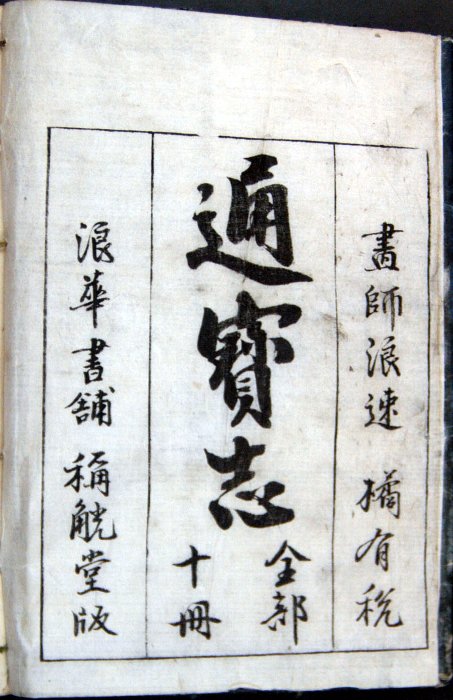 畫師浪速 橘有税
通寳志
全部
十冊
浪華書舗 称觥堂版